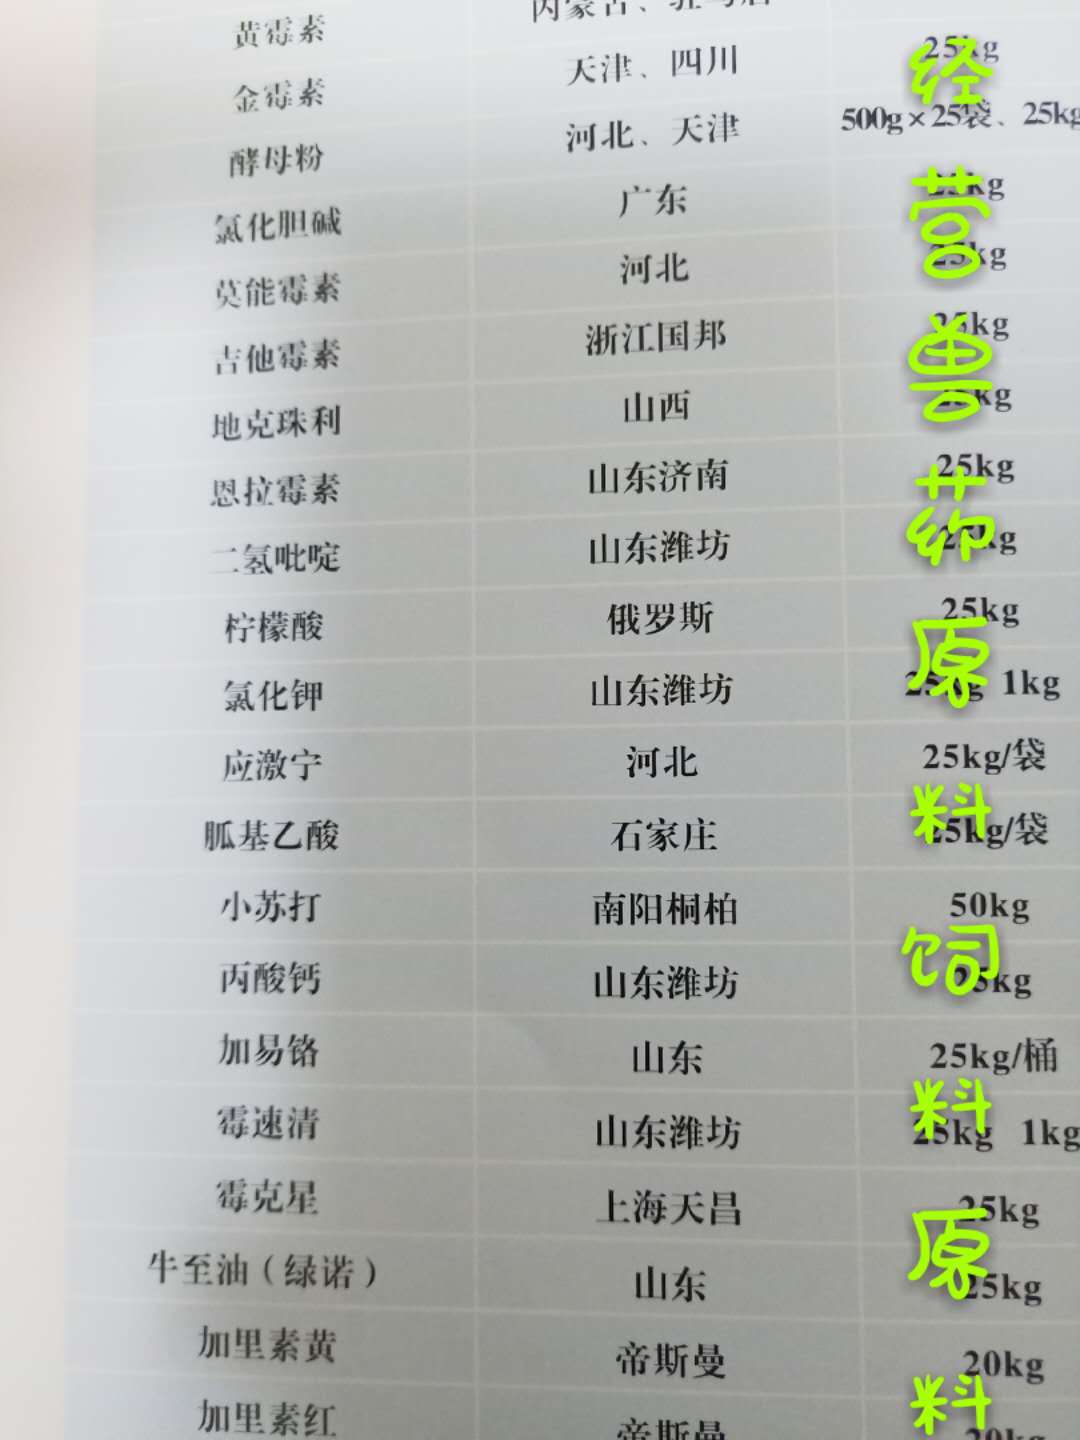 黄霉素 内蒙古、驻马店
金霉素 天津、四川 25kg
酵母粉 河北、天津 500g×25袋、25kg
氯化胆碱 广东 25kg
莫能霉素 河北 25kg
吉他霉素 浙江国邦 25kg
地克珠利 山西 25kg
恩拉霉素 山东济南 25kg
二氢吡啶 山东潍坊 25kg
柠檬酸 俄罗斯 25kg
氯化钾 山东潍坊 25kg 1kg
应激宁 河北 25kg/袋
胍基乙酸 石家庄 25kg/袋
小苏打 南阳桐柏 50kg
丙酸钙 山东潍坊 25kg
加易铬 山东 25kg/桶
霉速清 山东潍坊 25kg 1kg
霉克星 上海天昌 25kg
牛至油（绿诺） 山东 25kg
加里素黄 帝斯曼 20kg
加里素红 帝斯曼 20kg
经营兽药原料饲料原料